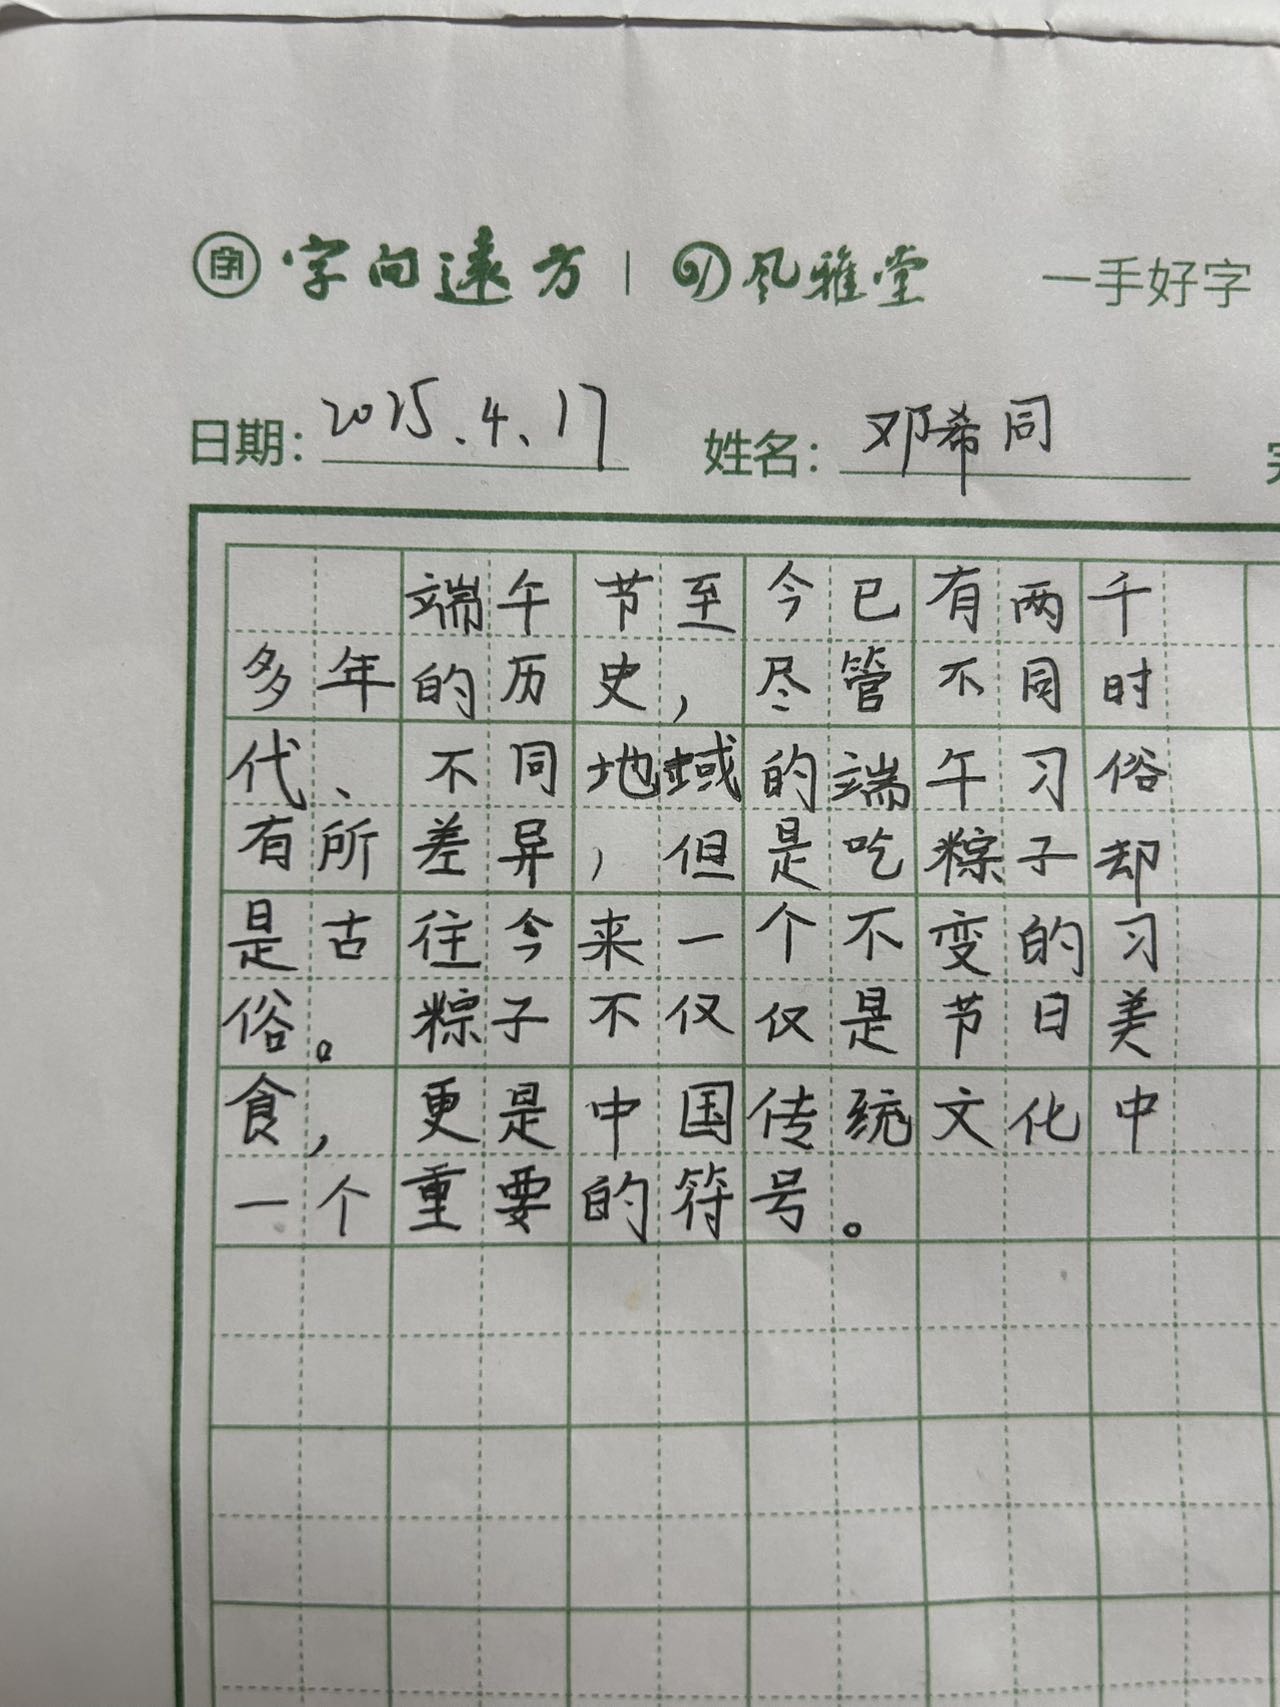 字 字向遠方 | 风雅堂 一手好字
日期: 2025.4.17 姓名: 邓希同
端午节至今已有两千
多年的历史，尽管不同时
代、不同地域的端午习俗
有所差异，但是吃粽子却
是古往今来一个不变的习
俗。粽子不仅仅是节日美
食，更是中国传统文化中
一个重要的符号。